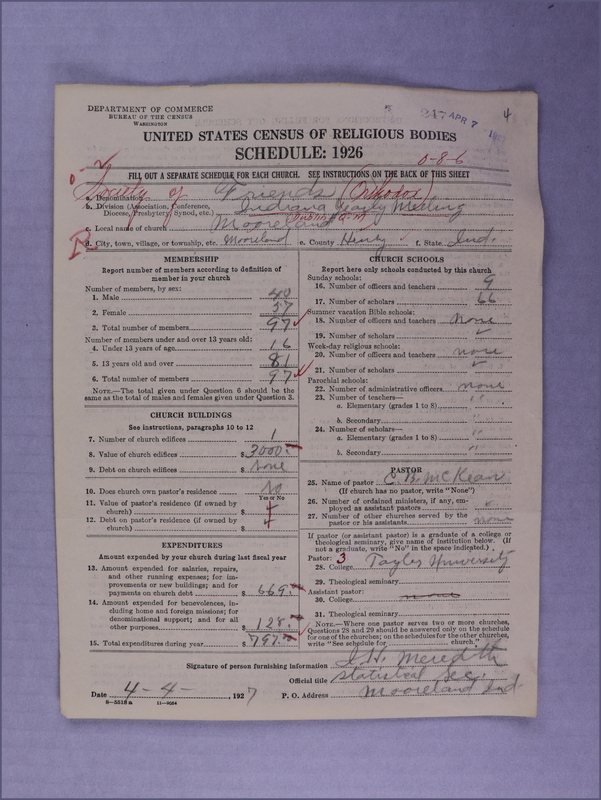 DEPARTMENT OF COMMERCE
BUREAU OF THE CENSUS
WASHINGTON
247 APR 7
4
UNITED STATES CENSUS OF RELIGIOUS BODIES
SCHEDULE: 1926
0-8-6
FILL OUT A SEPARATE SCHEDULE FOR EACH CHURCH. SEE INSTRUCTIONS ON THE BACK OF THIS SHEET
a. Denomination Society of Friends (Orthodox)
b. Division (Association, Conference, Diocese, Presbytery, Synod, etc.) Indiana Yearly Meeting
c. Local name of church Mooreland
d. City, town, village, or township, etc. Mooreland e. County Henry f. State Ind.
MEMBERSHIP
Report number of members according to definition of
member in your church
Number of members, by sex:
1. Male 40
2. Female 57
3. Total number of members 97
Number of members under and over 13 years old:
4. Under 13 years of age 16
5. 13 years old and over 81
6. Total number of members 97
NOTE.—The total given under Question 6 should be the
same as the total of males and females given under Question 3.
CHURCH BUILDINGS
See instructions, paragraphs 10 to 12
7. Number of church edifices 1
8. Value of church edifices $ 3000.
9. Debt on church edifices $ none
10. Does church own pastor's residence No
Yes or No
11. Value of pastor's residence (if owned by
church) $
12. Debt on pastor's residence (if owned by
church) $
EXPENDITURES
Amount expended by your church during last fiscal year
13. Amount expended for salaries, repairs,
and other running expenses; for im-
provements or new buildings; and for
payments on church debt $ 669.
14. Amount expended for benevolences, in-
cluding home and foreign missions; for
denominational support; and for all
other purposes $ 128.
15. Total expenditures during year $ 797.
CHURCH SCHOOLS
Report here only schools conducted by this church
Sunday schools:
16. Number of officers and teachers 9
17. Number of scholars 66
Summer vacation Bible schools:
18. Number of officers and teachers none
19. Number of scholars
Week-day religious schools:
20. Number of officers and teachers none
21. Number of scholars
Parochial schools:
22. Number of administrative officers none
23. Number of teachers—
a. Elementary (grades 1 to 8) "
b. Secondary "
24. Number of scholars—
a. Elementary (grades 1 to 8) "
b. Secondary "
PASTOR
25. Name of pastor C. B. McKean
(If church has no pastor, write "None")
26. Number of ordained ministers, if any, em-
ployed as assistant pastors
27. Number of other churches served by the
pastor or his assistants none
If pastor (or assistant pastor) is a graduate of a college or
theological seminary, give name of institution below. (If
not a graduate, write "No" in the space indicated.)
Pastor: 3
28. College Taylor University
29. Theological seminary
Assistant pastor:
30. College none
31. Theological seminary
NOTE.—Where one pastor serves two or more churches,
Questions 28 and 29 should be answered only on the schedule
for one of the churches; on the schedules for the other churches,
write "See schedule for church."
Signature of person furnishing information J. H. Meredith
Official title Statistical Sec.
Date 4-4-, 1927 P. O. Address Mooreland Ind.
8-5318 a 11-9034